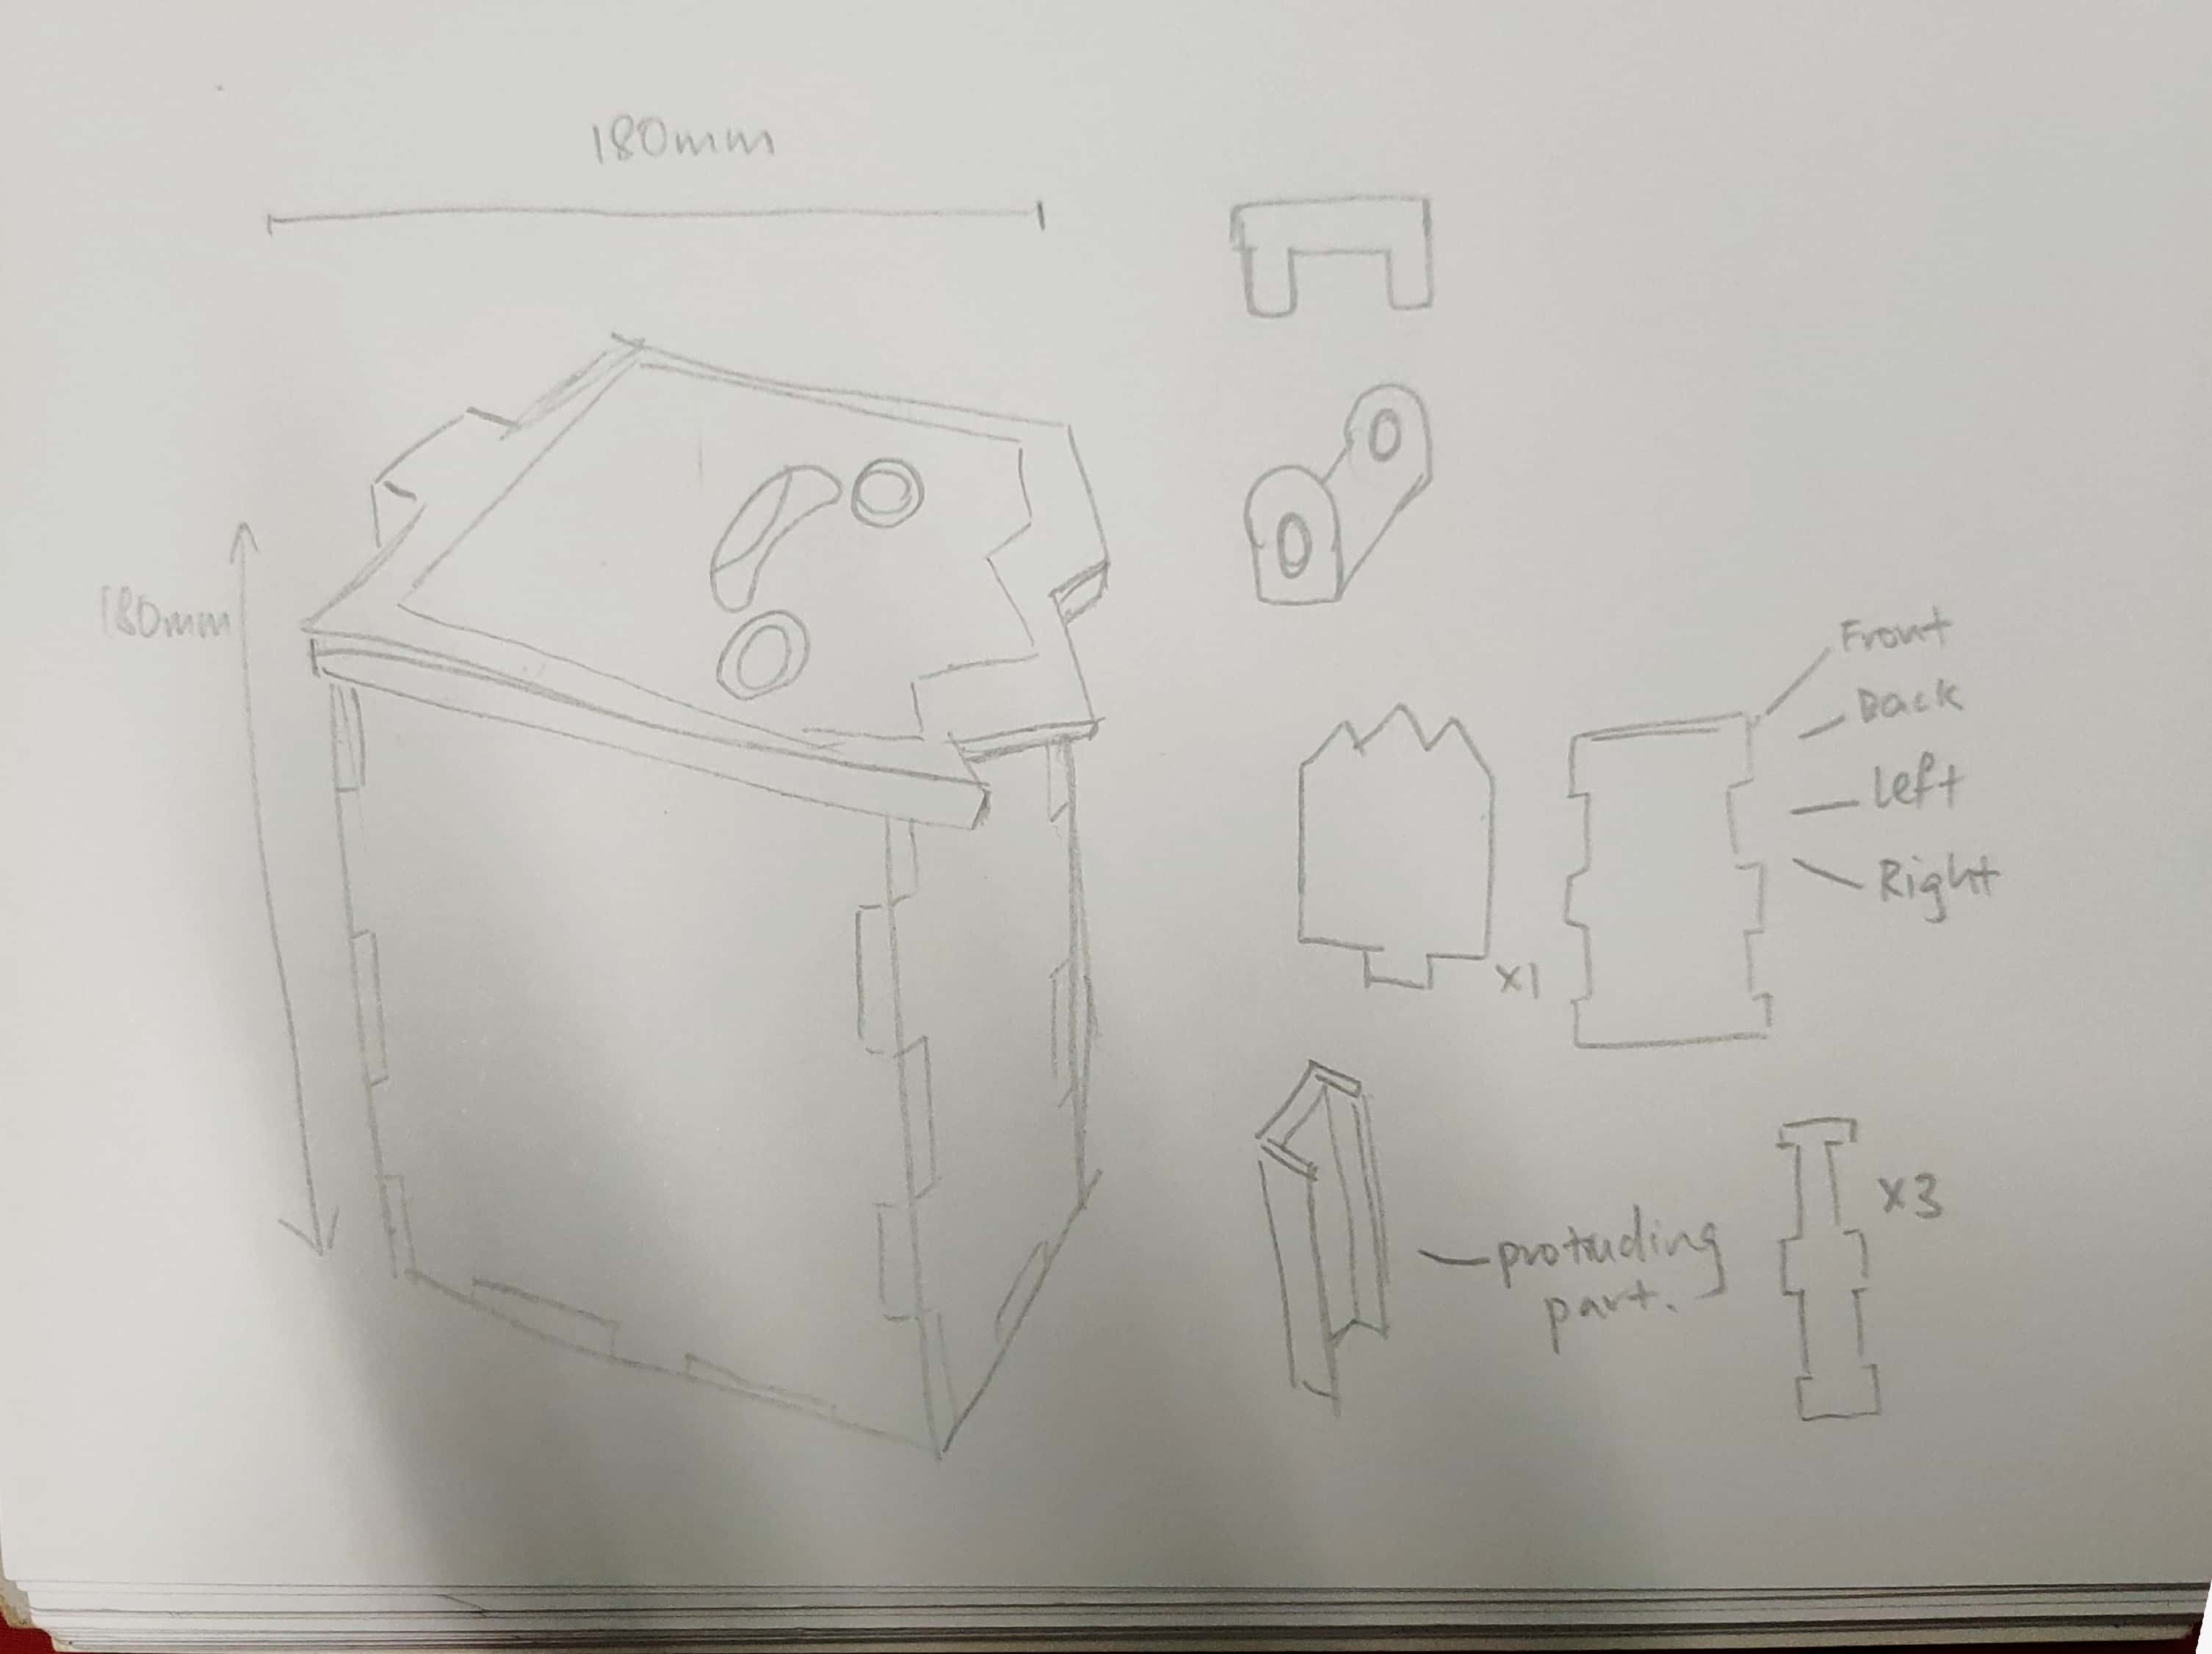 180mm
180mm
Front
Back
Left
Right
x1
protruding
part.
x3